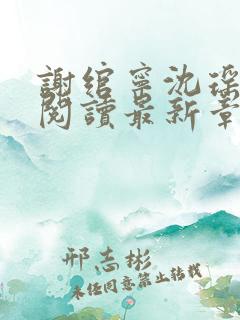 謝綰寧沈瑶
閱讀最新章
邢志彬
未经同意禁止转载